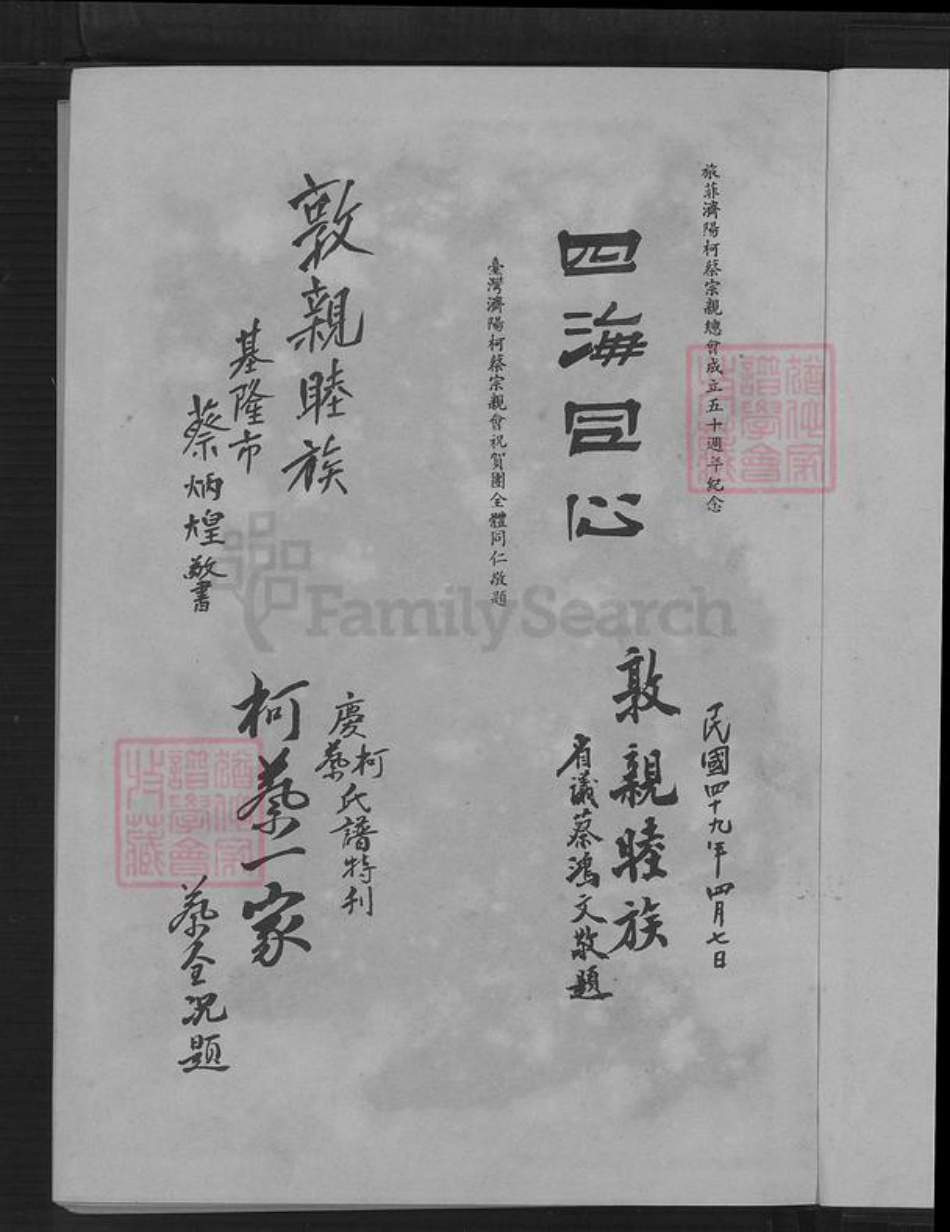 旅菲濟陽柯蔡宗親總會成立五十週年紀念
四海同心
臺灣濟陽柯蔡宗親會祝賀團全體同仁敬題
敦親睦族
基隆市
蔡炳煌敬書
民國四十九年四月七日
敦親睦族
省議蔡鴻文敬題
慶柯蔡氏譜特刊
柯蔡一家
蔡全況題
FamilySearch